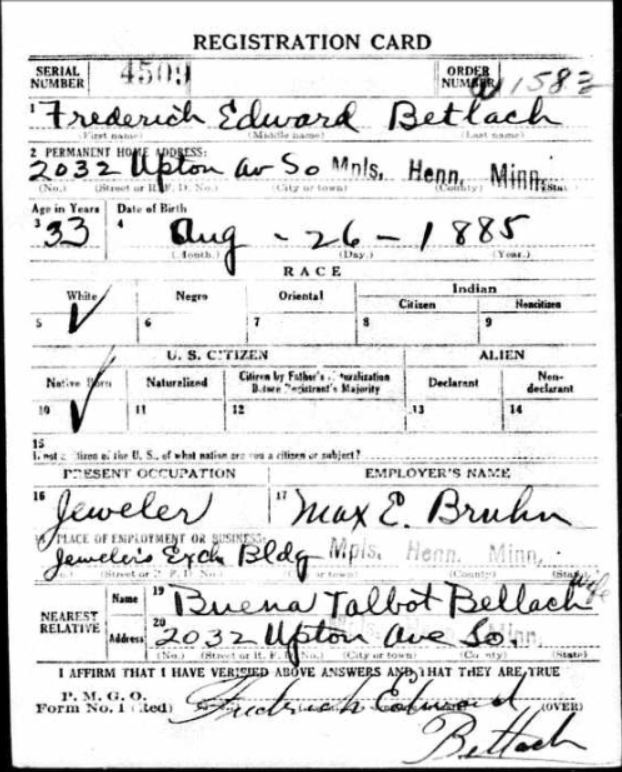 REGISTRATION CARD
SERIAL NUMBER 4509 ORDER NUMBER 1583
1 Frederich Edward Betlach
(First name) (Middle name) (Last name)
2 PERMANENT HOME ADDRESS:
2032 Upton Av So Mpls, Henn, Minn,
(No.) (Street or R. F. D. No.) (City or town) (County) (State)
Age in Years Date of Birth
3 33 4 Aug - 26 - 1885
(Month.) (Day.) (Year.)
RACE
White Negro Oriental Indian
Citizen Noncitizen
5 6 7 8 9
U. S. CITIZEN ALIEN
Native Born Naturalized Citizen by Father's Naturalization Before Registrant's Majority Declarant Non-declarant
10 11 12 13 14
15
If not a citizen of the U. S., of what nation are you a citizen or subject?
PRESENT OCCUPATION EMPLOYER'S NAME
16 Jeweler 17 Max E. Bruhn
18 PLACE OF EMPLOYMENT OR BUSINESS:
Jeweler's Exch Bldg Mpls, Henn. Minn,
(No.) (Street or R. F. D. No.) (City or town) (County) (State)
NEAREST RELATIVE
Name 19 Buena Talbot Betlach wife
Address 20 2032 Upton Ave So. Mpls, Henn, Minn,
(No.) (Street or R. F. D. No.) (City or town) (County) (State)
I AFFIRM THAT I HAVE VERIFIED ABOVE ANSWERS AND THAT THEY ARE TRUE
P. M. G. O.
Form No. 1 (Red) Fredrich Edward (OVER)
Betlach